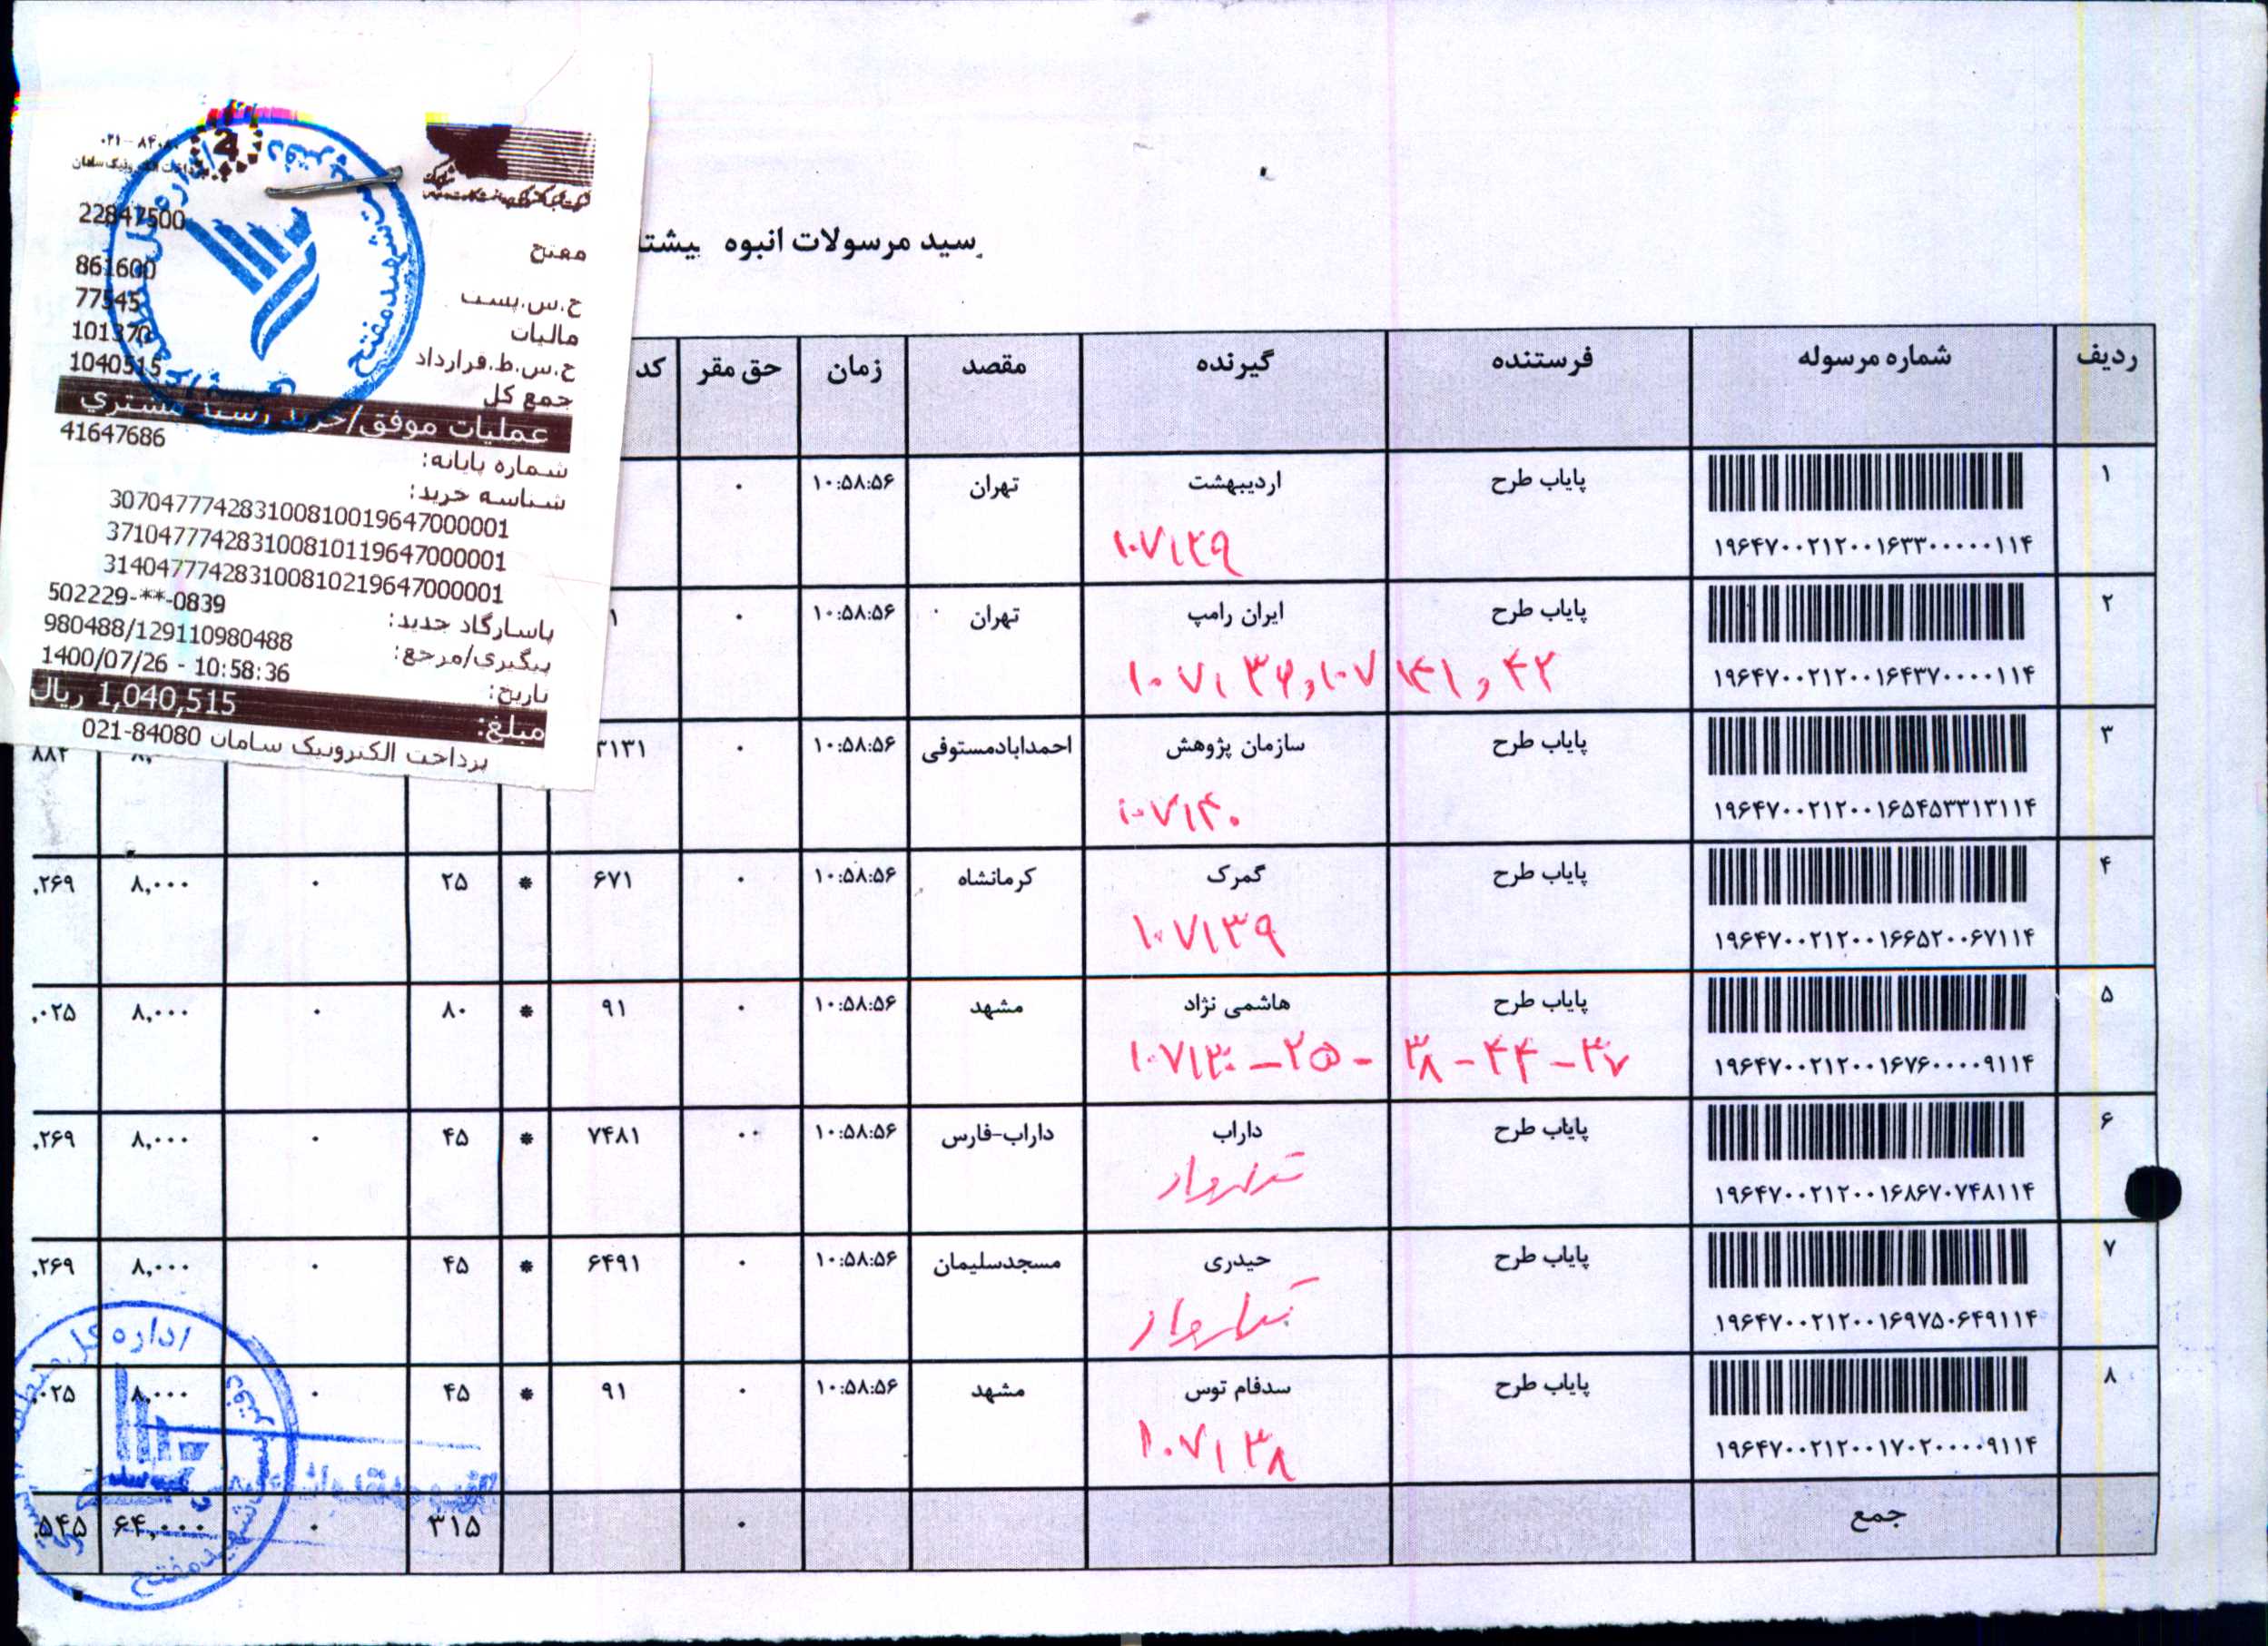 رسید مرسولات انبوه پیشتا
ردیف شماره مرسوله فرستنده گیرنده مقصد زمان حق مقر کد
۱ پایاب طرح اردیبهشت تهران ۱۰:۵۸:۵۶ ۰
۱۹۶۴۷۰۰۲۱۲۰۰۱۶۳۳۰۰۰۰۰۱۱۴ ۱۰۷۱۲۹
۲ پایاب طرح ایران رامپ تهران ۱۰:۵۸:۵۶ ۰ ۱
۱۹۶۴۷۰۰۲۱۲۰۰۱۶۴۳۷۰۰۰۰۱۱۴ ۱۰۷۱۳۶ , ۱۰۷۱۴۱ , ۴۲
۳ پایاب طرح سازمان پژوهش احمدابادمستوفی ۱۰:۵۸:۵۶ ۰ ۳۱۳۱
۱۹۶۴۷۰۰۲۱۲۰۰۱۶۵۴۵۳۳۱۳۱۱۴ ۱۰۷۱۴۰
۴ پایاب طرح گمرک کرمانشاه ۱۰:۵۸:۵۶ ۰ ۶۷۱ * ۲۵ ۰ ۸,۰۰۰ ,۲۶۹
۱۹۶۴۷۰۰۲۱۲۰۰۱۶۶۵۲۰۰۶۷۱۱۴ ۱۰۷۱۳۹
۵ پایاب طرح هاشمی نژاد مشهد ۱۰:۵۸:۵۶ ۰ ۹۱ * ۸۰ ۰ ۸,۰۰۰ ,۰۲۵
۱۹۶۴۷۰۰۲۱۲۰۰۱۶۷۶۰۰۰۰۹۱۱۴ ۳۸ - ۴۴ - ۳۷
۶ پایاب طرح داراب داراب-فارس ۱۰:۵۸:۵۶ ۰۰ ۷۴۸۱ * ۴۵ ۰ ۸,۰۰۰ ,۲۶۹
۱۹۶۴۷۰۰۲۱۲۰۰۱۶۸۶۷۰۷۴۸۱۱۴
۷ پایاب طرح حیدری مسجدسلیمان ۱۰:۵۸:۵۶ ۰ ۶۴۹۱ * ۴۵ ۰ ۸,۰۰۰ ,۲۶۹
۱۹۶۴۷۰۰۲۱۲۰۰۱۶۹۷۵۰۶۴۹۱۱۴
۸ پایاب طرح سدفام توس مشهد ۱۰:۵۸:۵۶ ۰ ۹۱ * ۴۵ ۰ ۸,۰۰۰ ۰۲۵
۱۹۶۴۷۰۰۲۱۲۰۰۱۷۰۲۰۰۰۰۹۱۱۴ ۱۰۷۱۳۸
جمع ۰ ۳۱۵ ۰ ۶۴,۰۰۰ ,۵۴۵
22847500
مفتح
861600
ح.س.پست
77545
مالیات
101370
ح.س.ط.قرارداد
1040515
جمع کل
عملیات موفق/خرید رسید مشتري
41647686
شماره پایانه:
شناسه خرید:
307047774283100810019647000001
371047774283100810119647000001
314047774283100810219647000001
502229-**-0839
پاسارگاد جدید:
980488/129110980488
پیگیري/مرجع:
1400/07/26 - 10:58:36
تاریخ:
1,040,515 ریال
مبلغ:
پرداخت الکترونیک سامان 84080-021
اداره کل
شهید مفتح